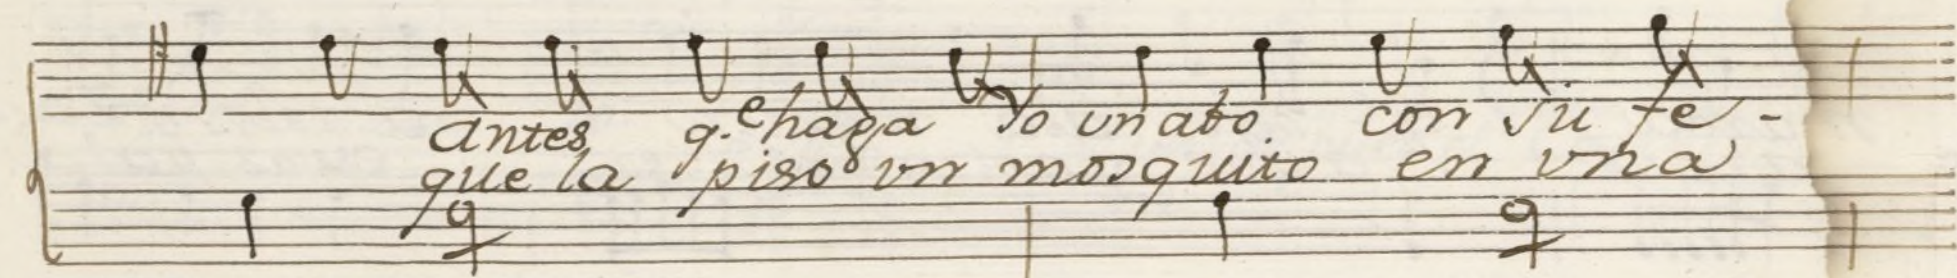 antes q.e haga Yo un ato con su fe-
que la piso vn mosquito en vna